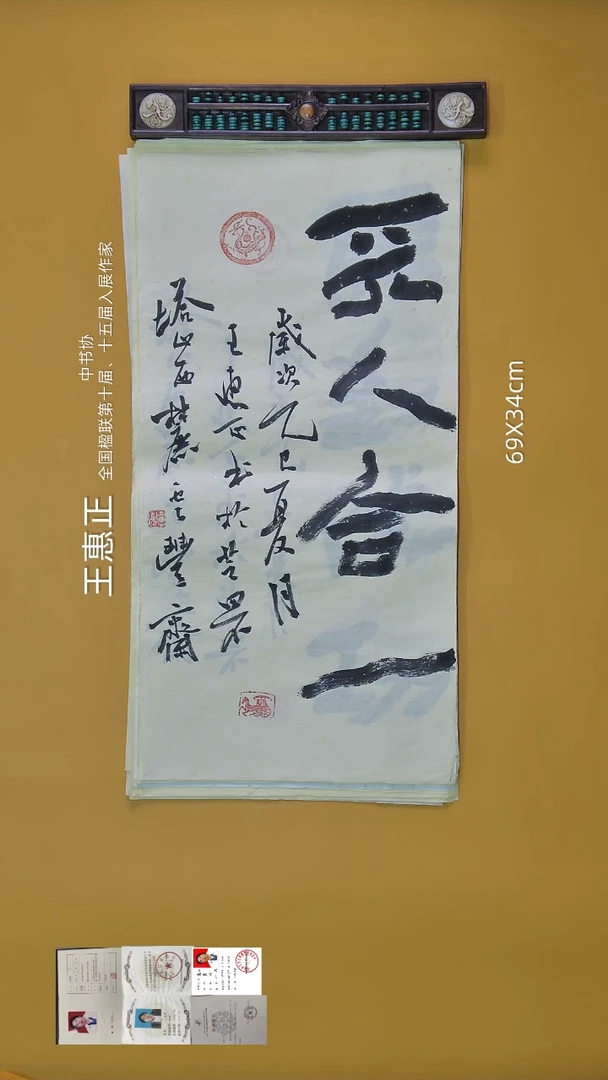 天人合一
歲次乙巳夏月
王惠正书於
塔山西麓云豐齋
69X34cm
中书协
全国楹联第十届、十五届入展作家
王惠正